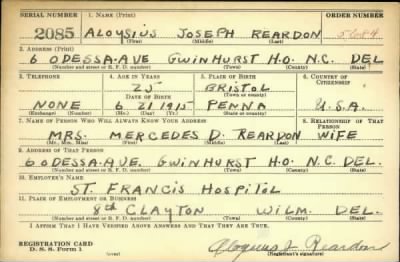 SERIAL NUMBER 1. NAME (Print) ORDER NUMBER
2085 ALOYSIUS JOSEPH REARDON 5684
(First) (Middle) (Last)
2. ADDRESS (Print)
6 ODESSA-AVE GWINHURST H.O. N.C. DEL
(Number and street or R. F. D. number) (Town) (County) (State)
3. TELEPHONE 4. AGE IN YEARS 5. PLACE OF BIRTH 6. COUNTRY OF CITIZENSHIP
25 BRISTOL
DATE OF BIRTH (Town or county)
NONE 6 21 1915 PENNA U.S.A.
(Exchange) (Number) (Mo.) (Day) (Yr.) (State or country)
7. NAME OF PERSON WHO WILL ALWAYS KNOW YOUR ADDRESS 8. RELATIONSHIP OF THAT PERSON
MRS. MERCEDES D. REARDON WIFE
(Mr., Mrs., Miss) (First) (Middle) (Last)
9. ADDRESS OF THAT PERSON
6 ODESSA-AVE. GWINHURST H.O. N.C. DEL.
(Number and street or R. F. D. number) (Town) (County) (State)
10. EMPLOYER'S NAME
ST. FRANCIS HOSPITAL
11. PLACE OF EMPLOYMENT OR BUSINESS
8th CLAYTON WILM. DEL.
(Number and street or R. F. D. number) (Town) (County) (State)
I AFFIRM THAT I HAVE VERIFIED ABOVE ANSWERS AND THAT THEY ARE TRUE.
REGISTRATION CARD
D. S. S. Form 1 (over) Aloysius J. Reardon
(Registrant's signature)